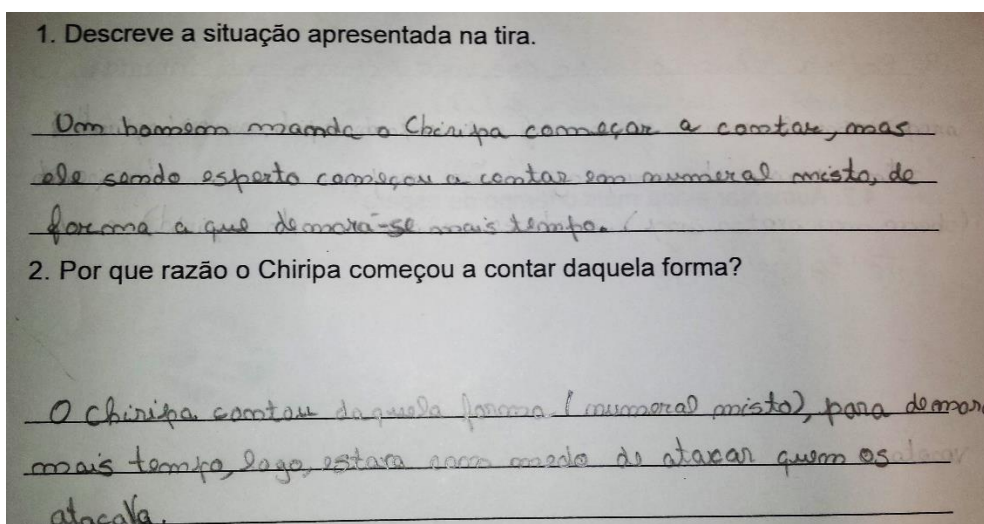 1. Descreve a situação apresentada na tira.
Um homem manda o Chiripa começar a contar, mas
ele sendo esperto começou a contar em numeral misto, de
forma a que demorá-se mais tempo.
2. Por que razão o Chiripa começou a contar daquela forma?
O chiripa contou daquela forma (numeral misto), para demorar
mais tempo, logo, estava com medo de atacar quem os
atacava.